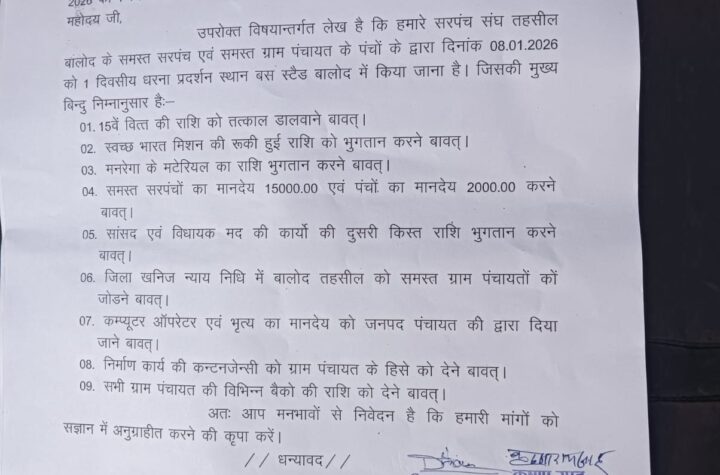 महोदय जी,
उपरोक्त विषयान्तर्गत लेख है कि हमारे सरपंच संघ तहसील
बालोद के समस्त सरपंच एवं समस्त ग्राम पंचायत के पंचों के द्वारा दिनांक 08.01.2026
को 1 दिवसीय धरना प्रदर्शन स्थान बस स्टैड बालोद में किया जाना है। जिसकी मुख्य
बिन्दु निम्नानुसार हैः–
01. 15वें वित्त की राशि को तत्काल डालवाने बावत्।
02. स्वच्छ भारत मिशन की रूकी हुई राशि को भुगतान करने बावत्।
03. मनरेगा के मटेरियल का राशि भुगतान करने बावत्।
04. समस्त सरपंचों का मानदेय 15000.00 एवं पंचों का मानदेय 2000.00 करने
बावत्।
05. सांसद एवं विधायक मद की कार्यो की दुसरी किस्त राशि भुगतान करने
बावत्।
06. जिला खनिज न्याय निधि में बालोद तहसील को समस्त ग्राम पंचायतों कों
जोडने बावत्।
07. कम्प्यूटर ऑपरेटर एवं भृत्य का मानदेय को जनपद पंचायत की द्वारा दिया
जाने बावत्।
08. निर्माण कार्य की कन्टनजेन्सी को ग्राम पंचायत के हिसे को देने बावत्।
09. सभी ग्राम पंचायत की विभिन्न बैको की राशि को देने बावत्।
अतः आप मनभावों से निवेदन है कि हमारी मांगों को
सज्ञान में अनुग्राहीत करने की कृपा करें।
//धन्यावद//